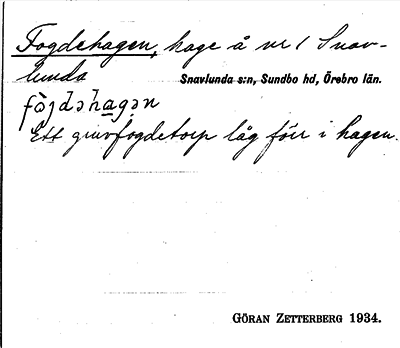 Fogdehagen, hage å nr 1 Snav-
lunda Snavlunda s:n, Sundbo hd, Örebro län.
fòjdəhagən
Ett gruvfogdetorp låg förr i hagen.
GÖRAN ZETTERBERG 1934.